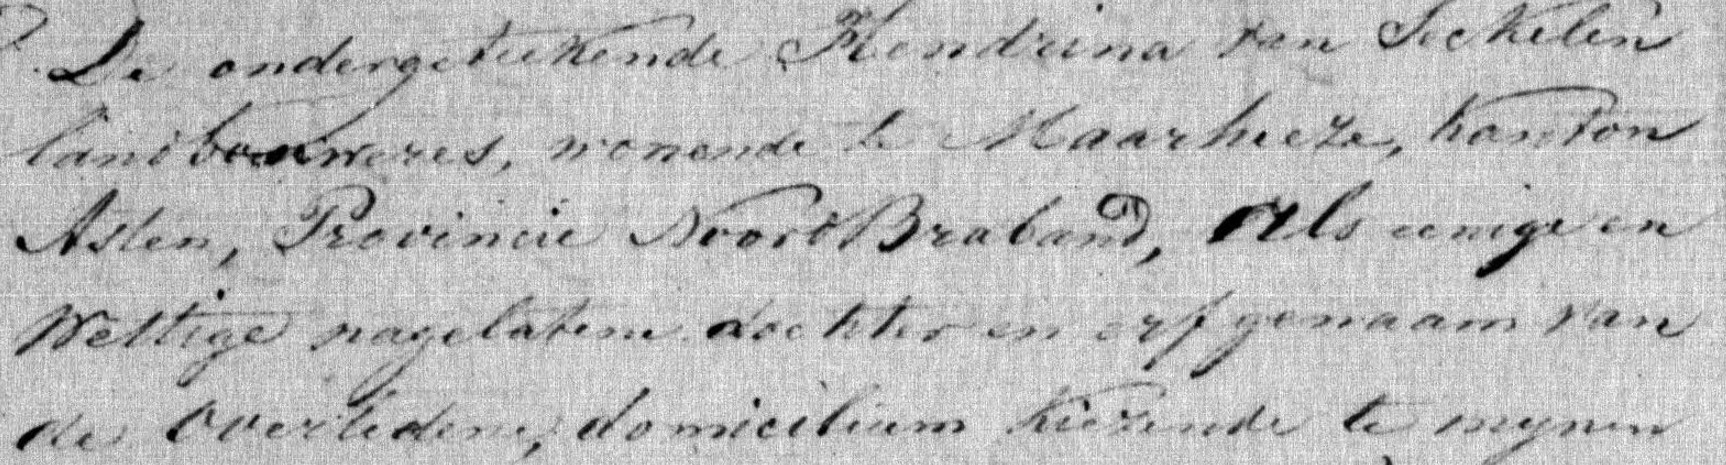 De ondergeteekende Hendrina van Seckelen
landbouweres, wonende te Maarheeze, kanton
Asten, Provincie Noord Braband, als eenige en
Wettige nagelatene dochter en erfgenaam van
de Overledene, domicilium kiezende te mynen